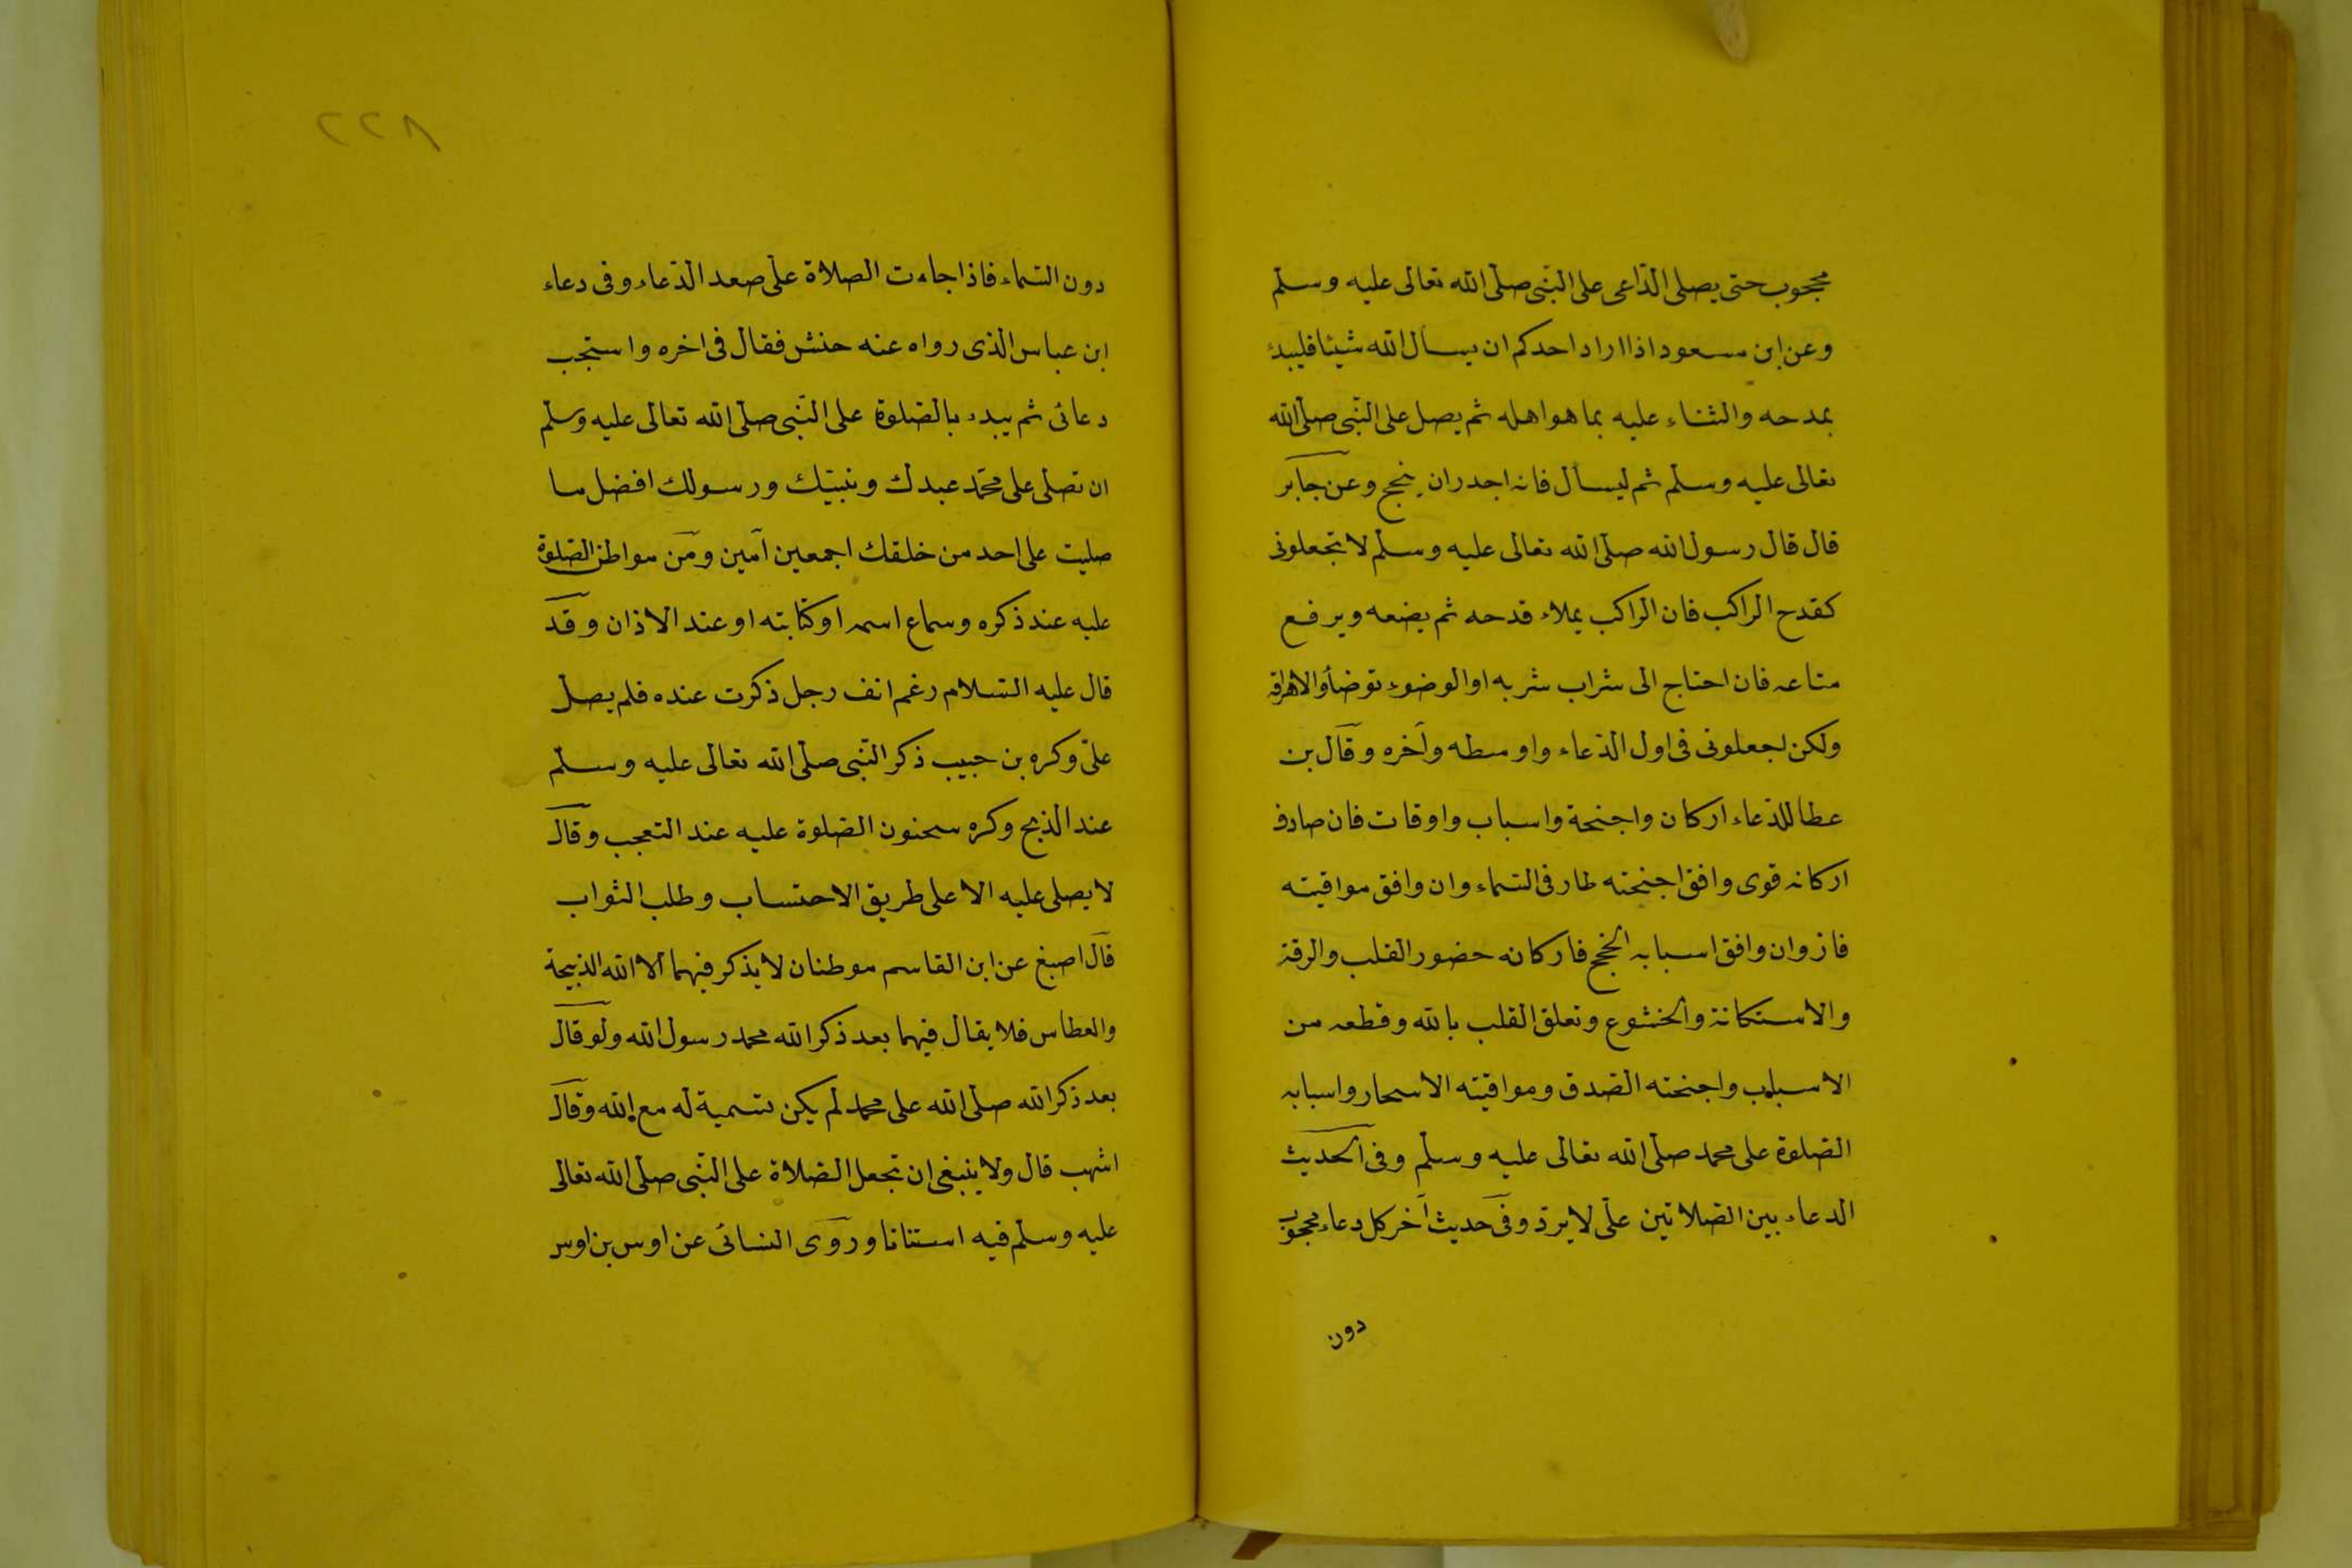 محجوب حتى يصلى الدّاعى على النّبى صلّى الله تعالى عليه وسلّم
وعن ابن مسعود اذا اراد احدكم ان يسأل الله شيئا فليبدء
بمدحه والثناء عليه بما هو اهله ثم يصل على النّبى صلّى الله
تعالى عليه وسلّم ثم ليسأل فانه اجدر ان ينجح وعن جابر
قال قال رسول الله صلّى الله تعالى عليه وسلّم لا تجعلونى
كقدح الراكب فان الراكب يملاء قدحه ثم يضعه ويرفع
متاعه فان احتاج الى شراب شربه او الوضوء توضأ والا هراقه
ولكن اجعلونى فى اول الدّعاء واوسطه وآخره وقال بن
عطا للدّعاء اركان واجنحة واسباب واوقات فان صادف
اركانه قوى وافق اجنحته طار فى السّماء وان وافق مواقيته
فاز وان وافق اسبابه انجح فاركانه حضور القلب والرقة
والاستكانة والخشوع وتعلق القلب بالله وقطعه من
الاسباب واجنحته الصّدق ومواقيته الاسحار واسبابه
الصّلوة على محمد صلّى الله تعالى عليه وسلّم وفى الحديث
الدعاء بين الصّلاتين علىّ لا يردّ وفى حديث آخر كل دعاء محجوب
دون
٢٢٨
دون السّماء فاذا جاءت الصلاة علىّ صعد الدّعاء وفى دعاء
ابن عباس الذى رواه عنه حنش فقال فى اخره واستجب
دعائى ثم يبدء بالصّلوة على النّبى صلّى الله تعالى عليه وسلّم
ان تصلى على محمّد عبدك ونبيّك ورسولك افضل ما
صليت على احد من خلقك اجمعين آمين ومن مواطن الصّلوة
عليه عند ذكره وسماع اسمه او كتابته او عند الاذان وقد
قال عليه السّلام رغم انف رجل ذكرت عنده فلم يصل
علىّ وكره بن حبيب ذكر النّبى صلّى الله تعالى عليه وسلّم
عند الذبح وكره سحنون الصّلوة عليه عند التعجب وقال
لا يصلى عليه الا على طريق الاحتساب وطلب الثواب
قال اصبغ عن ابن القاسم موطنان لا يذكر فيهما الا الله الذبيحة
والعطاس فلا يقال فيهما بعد ذكر الله محمد رسول الله ولو قال
بعد ذكر الله صلّى الله على محمد لم يكن تسمية له مع الله وقال
اشهب قال ولا ينبغى ان تجعل الصّلاة على النّبى صلّى الله تعالى
عليه وسلّم فيه استنانا وروى النسائى عن اوس بن اوس